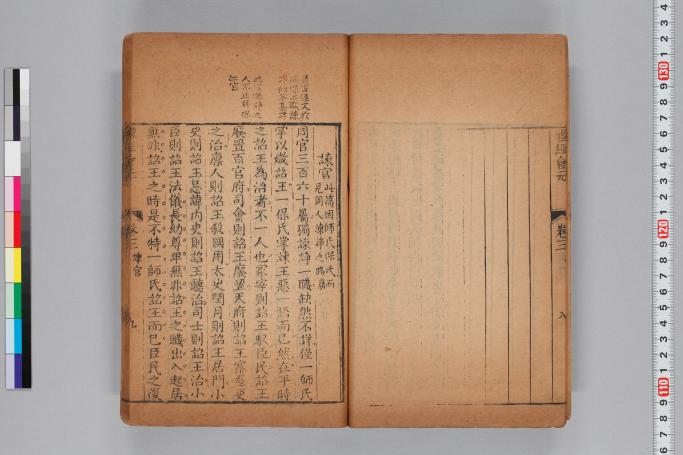 禮經會元
卷三
八
諫官
此篇因師氏保氏而
見周人諫諍之職廣
周官三百六十屬獨諫諍一職缺然不詳僅一師氏
掌以媺詔王一保氏掌諫王惡一語而已然在平時
之詔王為治者不一人也冢宰則詔王馭臣民詔王
廢置百官府司會則詔王廢置天府則詔王察羣吏
之治廩人則詔王殺國用太史閏月則詔王居門小
史則詔王忌諱内史則詔王聽治司士則詔王治小
臣則詔王法儀長幼尊卑無非詔王之職出入起居
無非詔王之時是不特一師氏詔王而已臣民之復
卷三 諫官
九